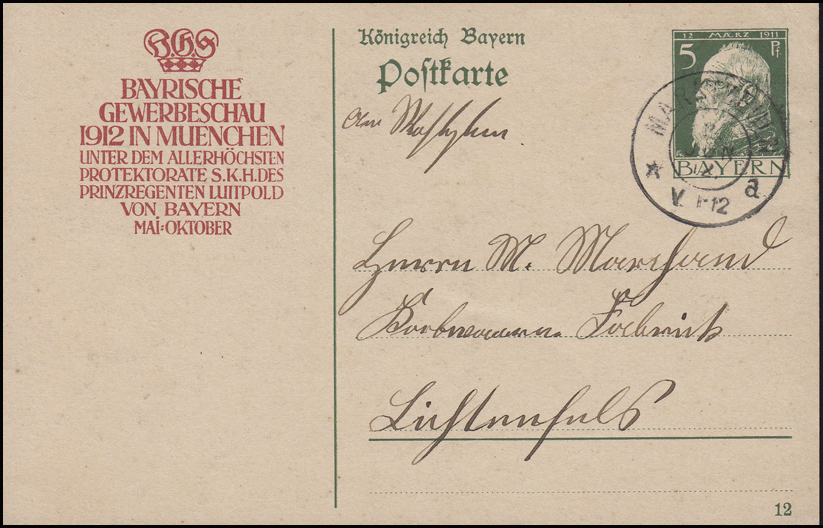 BAYRISCHE
GEWERBESCHAU
1912 IN MUENCHEN
UNTER DEM ALLERHÖCHSTEN
PROTEKTORATE S.K.H.DES
PRINZREGENTEN LUITPOLD
VON BAYERN
MAI-OKTOBER
Königreich Bayern
Postkarte
12 MÄRZ 1911
5 Pf
BAYERN
V. 1-12 a
Herrn M. Marchand
Korbwaren-Fabrik
Lichtenfels
12